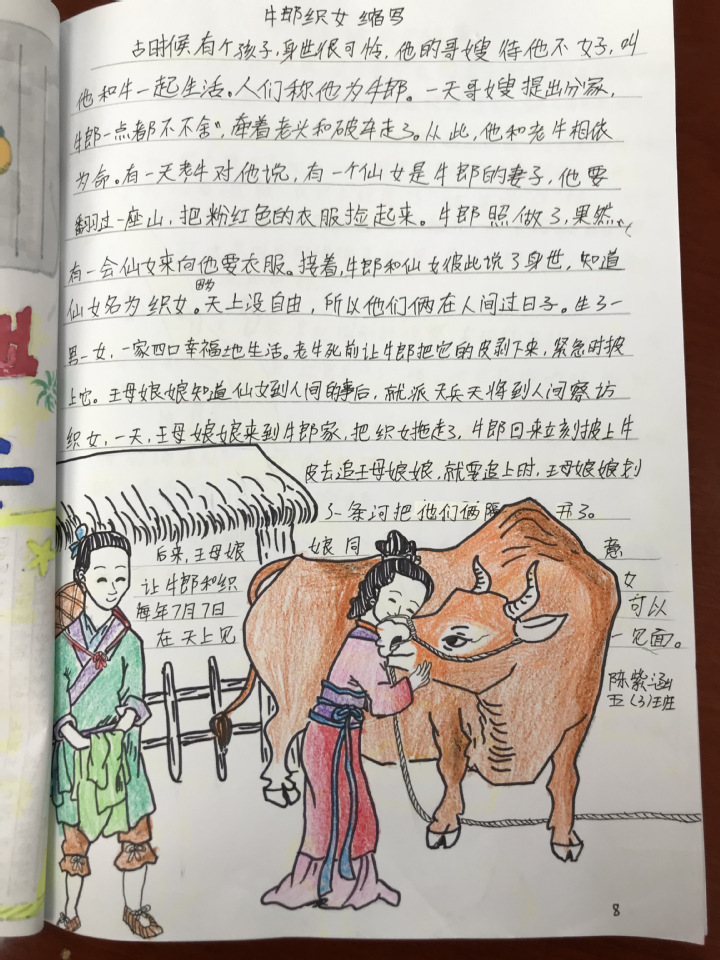 牛郎织女 缩写
古时候有个孩子,身世很可怜,他的哥嫂待他不好,叫
他和牛一起生活。人们称他为牛郎。一天哥嫂提出分家,
牛郎一点都不不舍",牵着老头和破车走了。从此,他和老牛相依
为命。有一天老牛对他说,有一个仙女是牛郎的妻子,他要
翻过一座山,把粉红色的衣服捡起来。牛郎照做了,果然
有一会仙女来向他要衣服。接着,牛郎和仙女彼此说了身世,知道
仙女名为织女。因为天上没自由,所以他们俩在人间过日子。生了一
男一女,一家四口幸福地生活。老牛死前让牛郎把它的皮剥下来,紧急时披
上它。王母娘娘知道仙女到人间的事后,就派天兵天将到人间察访
织女,一天,王母娘娘来到牛郎家,把织女拖走了,牛郎回来立刻披上牛
皮去追王母娘娘,就要追上时,王母娘娘划
了一条河把他们俩隔开了。
后来,王母娘娘同意
让牛郎和织女
每年7月7日可以
在天上见一见面。
陈紫涵
五(3)班
8